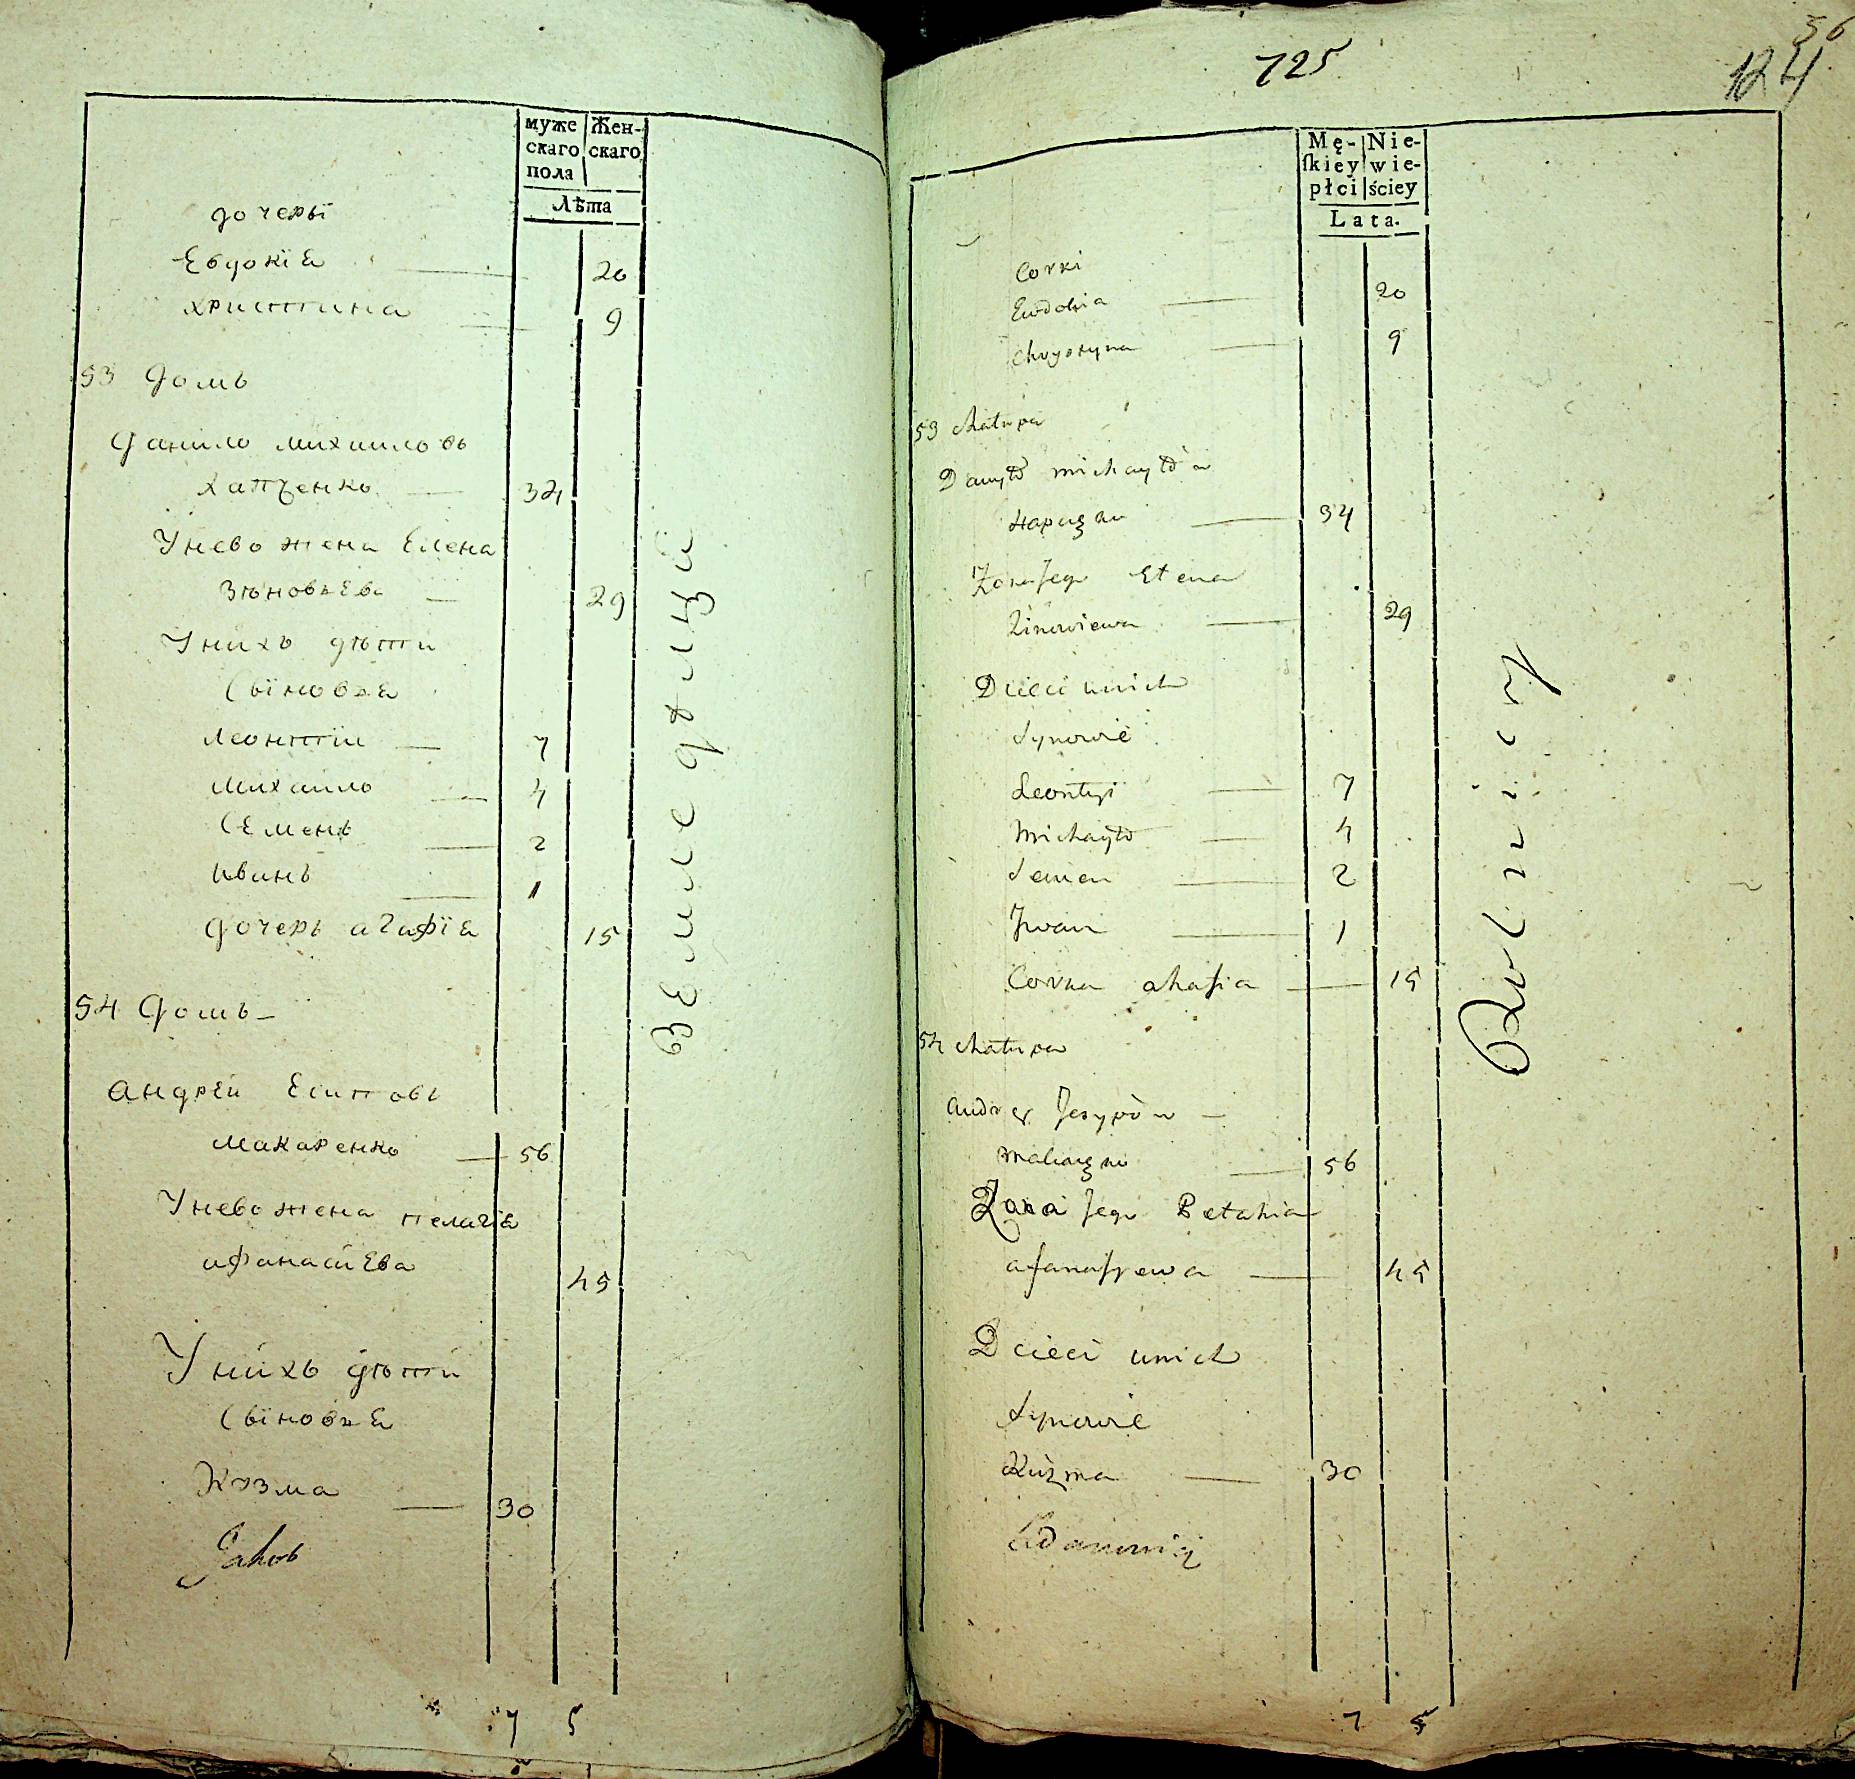 муже Жен-
скаго скаго
пола
Лѣта
дочеры
Евдокіа 20
христина 9
53 домъ
данило михаиловъ
хапченко 34
Унево жена Елена
Зѣновьева 29
Унихъ дѣти
Сыновья
леонтіи 7
михаило 4
Семенъ 2
иванъ 1
дочерь агафїа 15
54 домъ
андрей Есиповъ
макаренко 56
Унево жена пелагія
афанасиева 45
Унихъ дѣти
Сыновья
Козма 30
Jakob
7 5
Земледѣлцы
725
56
124
Mę- Nie-
ſkiey wie-
płci ściey
Lata.
Corki
Eudokia 20
Chrystyna 9
53 chatupa
Danyło michayłów
Hapczenko 34
Zona Jego Elena
Zinowiewa 29
Dzieci unich
Synowie
Leontyi 7
Michayło 4
Semen 2
Jwan 1
Corka ahafia 15
54 chatupa
andrey Jesypów
makarenko 56
Zona Jego Pelahia
afanaſyewa 45
Dzieci unich
Synowie
Kuzma 30
7 5
Rolnicy